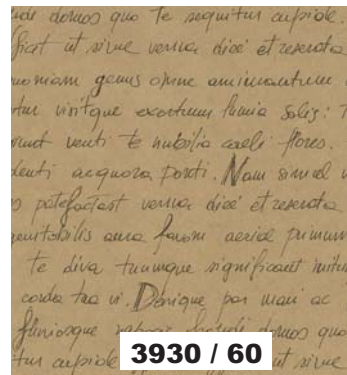 domos quo te sequitur cupide.
ficat ut simul verna dice et reserata
quoniam genus omne animantum
tur visitque exortum lumia solis: T
venti te nubilia caeli flores.
denti aequora ponti. Nam simul v
patefactast verna dice et reserata
genitabilis aura favoni aeriae primum
te diva tuumque significant initu
corda tua vi. Denique per mari ac
fluviosque domos quo
tur cupide 3930 / 60 ut sirue